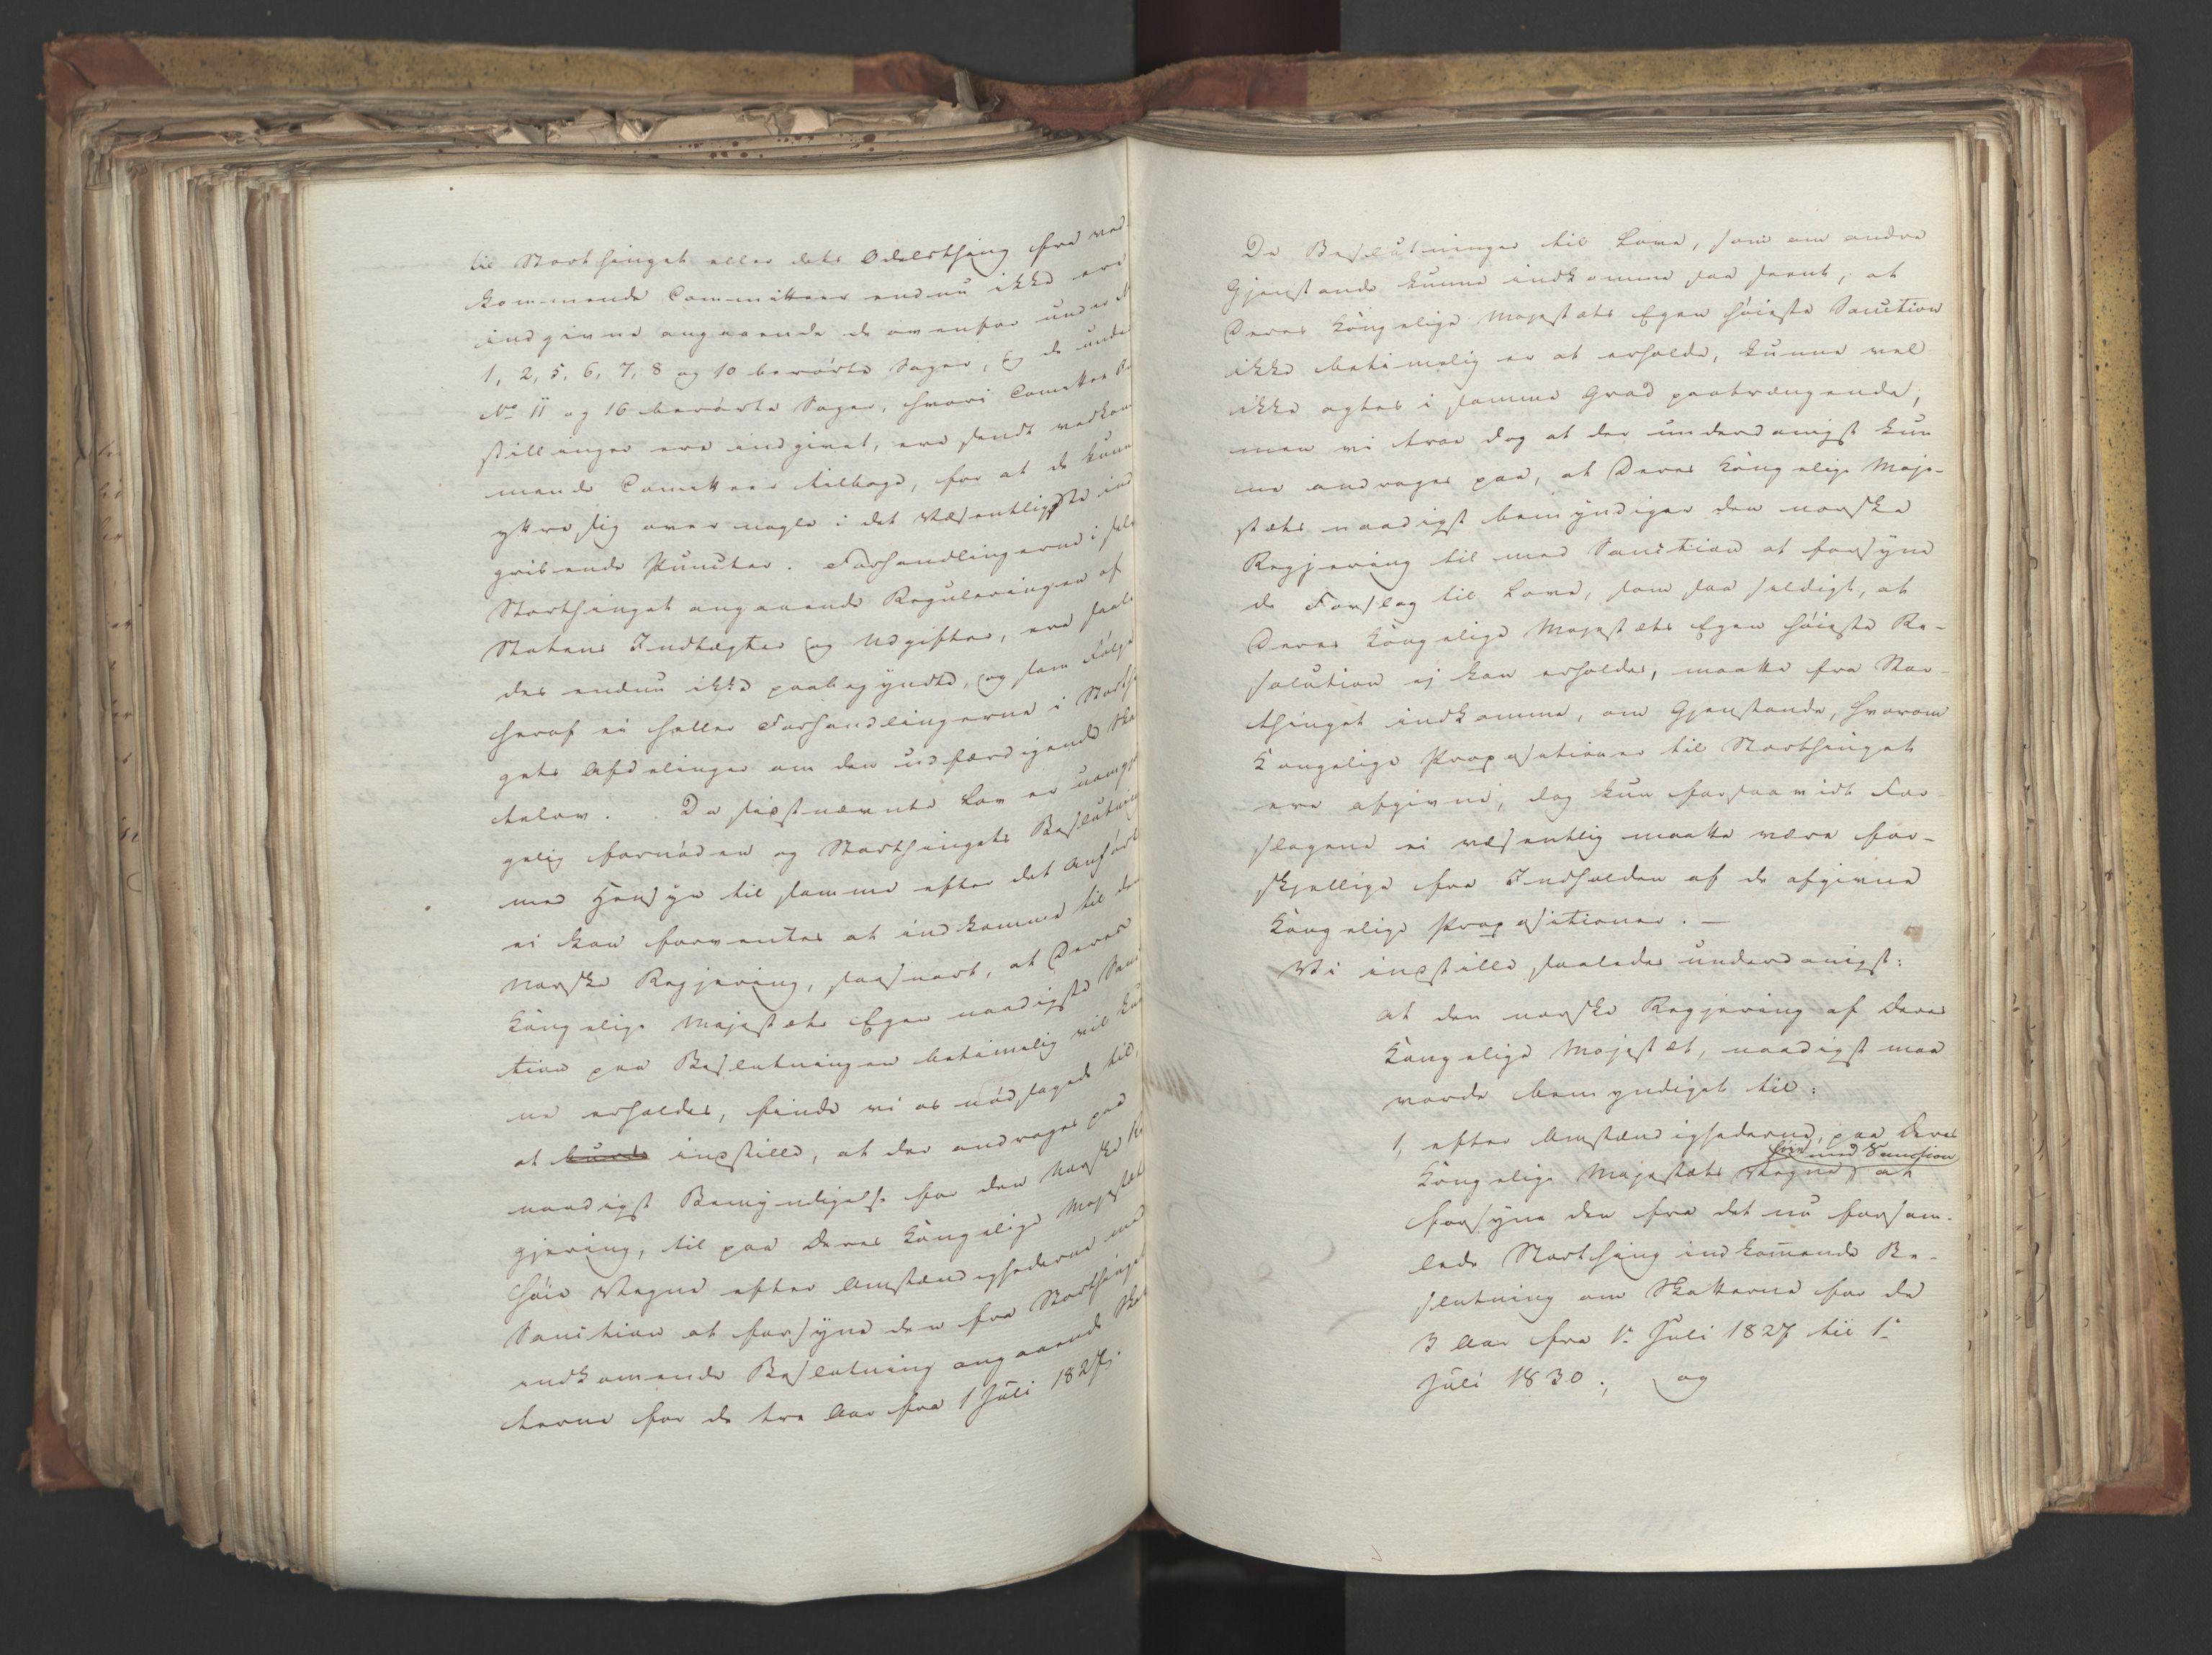 til Storthinget eller dets Odelsthing fra ved-
kommende Committeer endnu ikke ere
indgivne angaaende de ovenfor under N
1, 2, 5, 6, 7, 8 og 10 berørte Sager, og de under
No 11 og 16 berørte Sager, hvori Comitee
stillinger ere indgivet, ere sendt vedkom
mende Comitteer tilbage, for at de kunn
yttre sig over nogle i det Væsentligste ind
gribende Puncter. Forhandlingerne i selv
Storthinget angaaende Reguleringen af
Statens Indtægter og Udgifter, ere saale
des endnu ikke paabegyndte, og som Følge
heraf ei heller Forhandlingerne i Storth
gets Afdelinger om den udfærdigende Ska
telov. Da sidstnævnte Lov er uomgj
gelig fornøden og Storthingets Beslutning
med Hensyn til samme efter det Anført
ei kan forventes at indkomme til den
norske Regjering, saasnart, at Deres
Kongelige Majestæts Egen naadigste Sanc
tion paa Beslutningen betimelig vil kun
ne erholdes, finde vi os nødsagede til,
at burde indstille, at der andrages paa
naadigst Bemyndigelse for den Norske Re
gjering, til paa Deres Kongelige Majestæts
høie Vegne efter Omstændighederne med
Sanction at forsyne den fra Storthinget
indkomende Beslutning angaaende Skat
terne for de tre Aar fra 1 Juli 1827.
De Beslutninger til Love, som om andre
Gjenstande kunne indkomme saa seent, at
Deres Kongelige Majestæts Egen høieste Sanction
ikke betimelig er at erholde, kunne vel
ikke agtes i samme Grad paatrængende,
men vi troe dog at der underdanigst kun
ne andrages paa, at Deres Kongelige Maje-
stæts naadigst bemyndiger den norske
Regjering til med Sanction at forsyne
de Forslag til Love, som saa sildigt, at
Deres Kongelige Majestæts Egen høieste Re-
solution ej kan erholdes, maatte fra Stor-
thinget indkomme, om Gjenstande, hvorom
Kongelige Propositioner til Storthinget
ere afgivne, dog kun forsaavidt For-
slagene ei væsentlig maatte være for-
skjellige fra Indholden af de afgivne
Kongelige Propositioner. –
Vi indstille saaledes underdanigst:
at den norske Regjering af Deres
Kongelige Majestæt, naadigst maa
vorde bemyndiget til:
1, efter Omstændighederne, paa Deres
Kongelige Majestæts Vegne med Sanction at
forsyne den fra det nu forsam-
lede Storthing indkomende Be-
slutning om Skatterne for de
3 Aar fra 1e Juli 1827 til 1e
Juli 1830; og